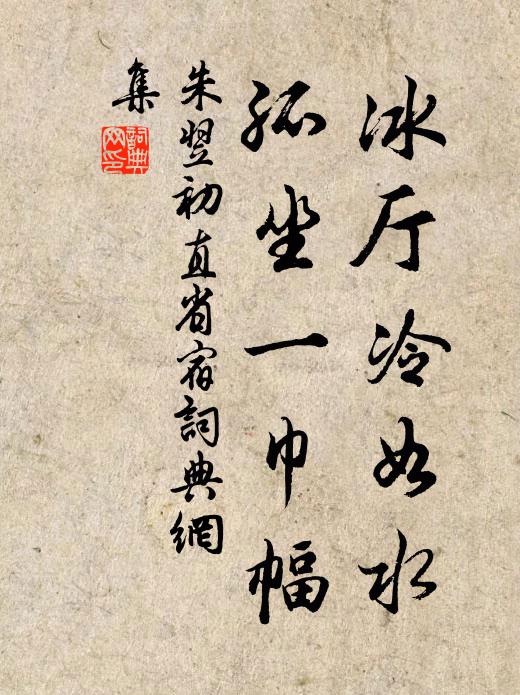 冰厅冷如水
孤坐一巾幅
朱翌初直省宿詞典網
集
詞典网印